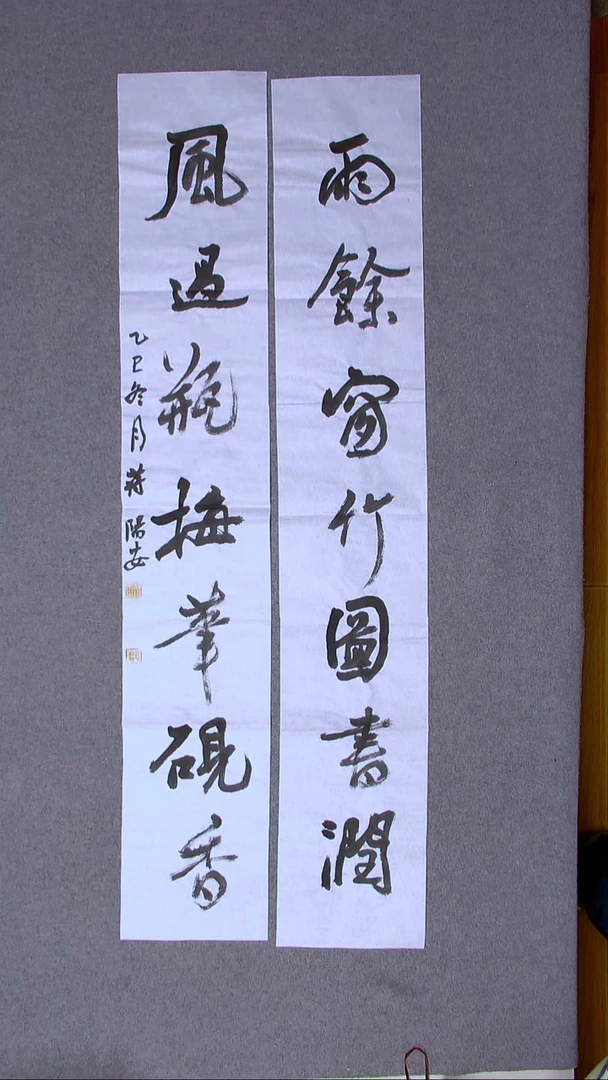 雨餘窗竹圖書潤
風過瓶梅華硯香
乙巳冬月蔣陽安